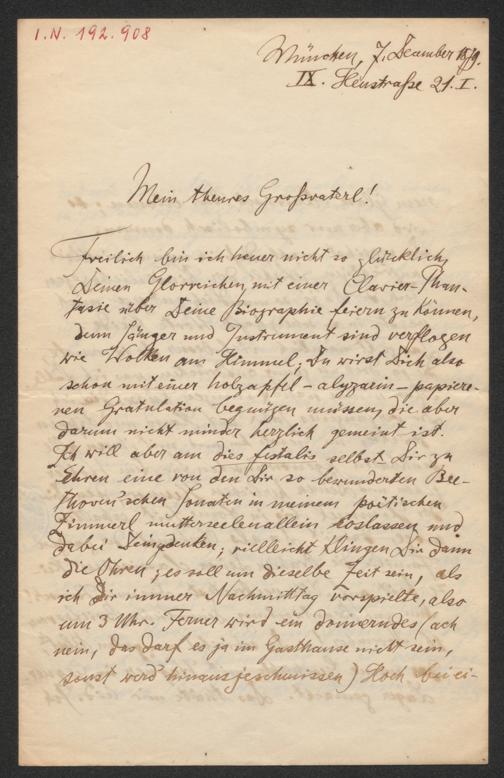 I.N. 192.908
München, 7. December 1879.
IX. Heustraße 21. I.
Mein theures Großvaterl!
Freilich bin ich heuer nicht so glücklich,
Deinen Glorreichen mit einer Clavier-Phan-
tasie über Deine Biographie feiern zu können,
denn Sänger und Instrument sind verflogen
wie Wolken am Himmel; Du wirst Dich also
schon mit einer holzapfel-alyzarin-papiere-
nen Gratulation begnügen müssen, die aber
darum nicht minder herzlich gemeint ist.
Ich will aber am dies festalis selbst Dir zu
Ehren eine von den Dir so bewunderten Bee-
thoven'schen Sonaten in meinem poëtischen
Zimmerl mutterseelenallein loslassen und
dabei Dein gedenken; vielleicht klingen Dir dann
die Ohren; es soll um dieselbe Zeit sein, als
ich Dir immer Nachmittag vorspielte, also
um 3 Uhr. Ferner wird ein donnerndes (ach
nein, das darf es ja im Gasthause nicht sein,
sonst werd' hinausgeschmissen) Hoch bei ei-